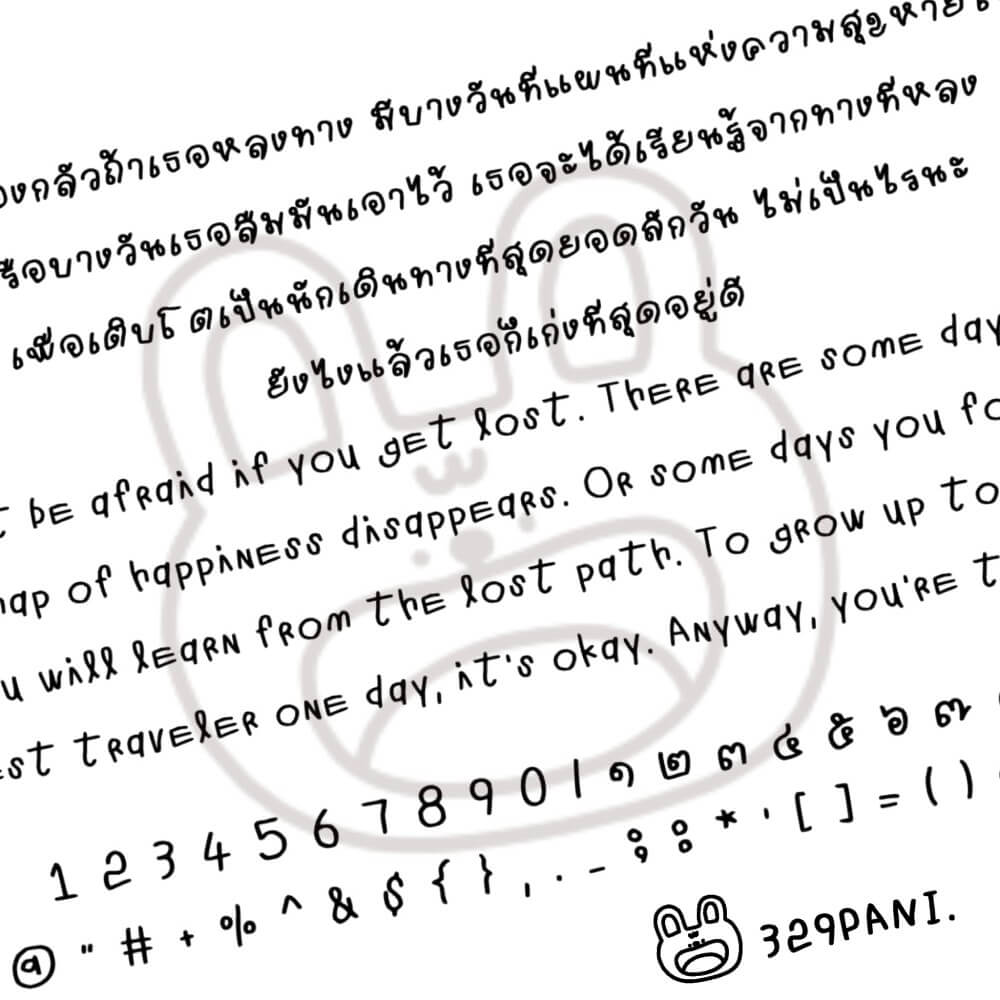 องกลัวถ้าเธอหลงทาง มีบางวันที่แผนที่แห่งความสุขหาย
รือบางวันเธอลืมมันเอาไว้ เธอจะได้เรียนรู้จากทางที่หลง
เพื่อเติบโตเป็นนักเดินทางที่สุดยอดสักวัน ไม่เป็นไรนะ
ยังไงแล้วเธอก็เก่งที่สุดอยู่ดี
t be afraid if you get lost. There are some day
ap of happiness disappears. Or some days you fo
u will learn from the lost path. To grow up to
st traveler one day, it's okay. Anyway, you're t
1 2 3 4 5 6 7 8 9 0 | ๑ ๒ ๓ ๔ ๕ ๖ ๗
@ " # + % ^ & $ { } , . - ; : * ' [ ] = ( )
329PANI.